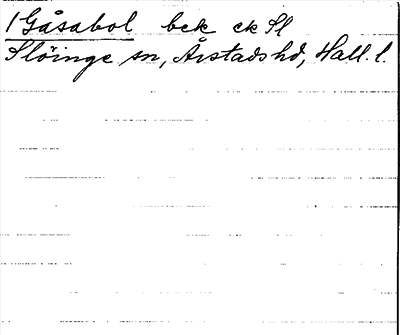 1 Gåsabol bek ek Sl
Slöinge sn, Årstads hd, Hall. l.